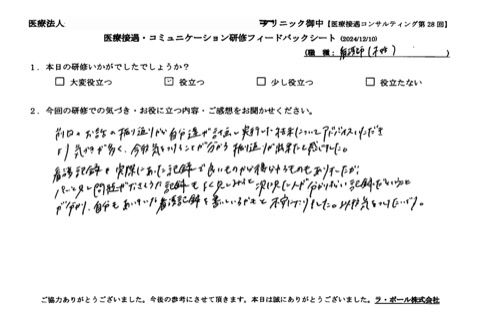 医療法人 クリニック御中【医療接遇コンサルティング第28回】
医療接遇・コミュニケーション研修フィードバックシート (2024/12/10)
（職 種：看護師
1．本日の研修いかがでしたでしょうか？
□ 大変役立つ ☑ 役立つ □ 少し役立つ □ 役立たない
2．今回の研修での気づき・お役に立つ内容・ご感想をお聞かせください。
前回のお話の振り返りから自分達が計画し実行した結果についてアドバイスいただき
より気づきが多く、今後気をつけることが分かり振り返りが出来たと感じました。
看護記録も実際にあった記録で良いものから様々なものもありましたが、
パッと見問題がなさそうな記録もよく見てみると次に見た人が分かりにくい記録だということ
が分かり、自分もあいまいな看護記録を書いているかもと不安になりました。以後気をつけたいです。
ご協力ありがとうございました。今後の参考にさせて頂きます。本日は誠にありがとうございました。ラ・ポール株式会社